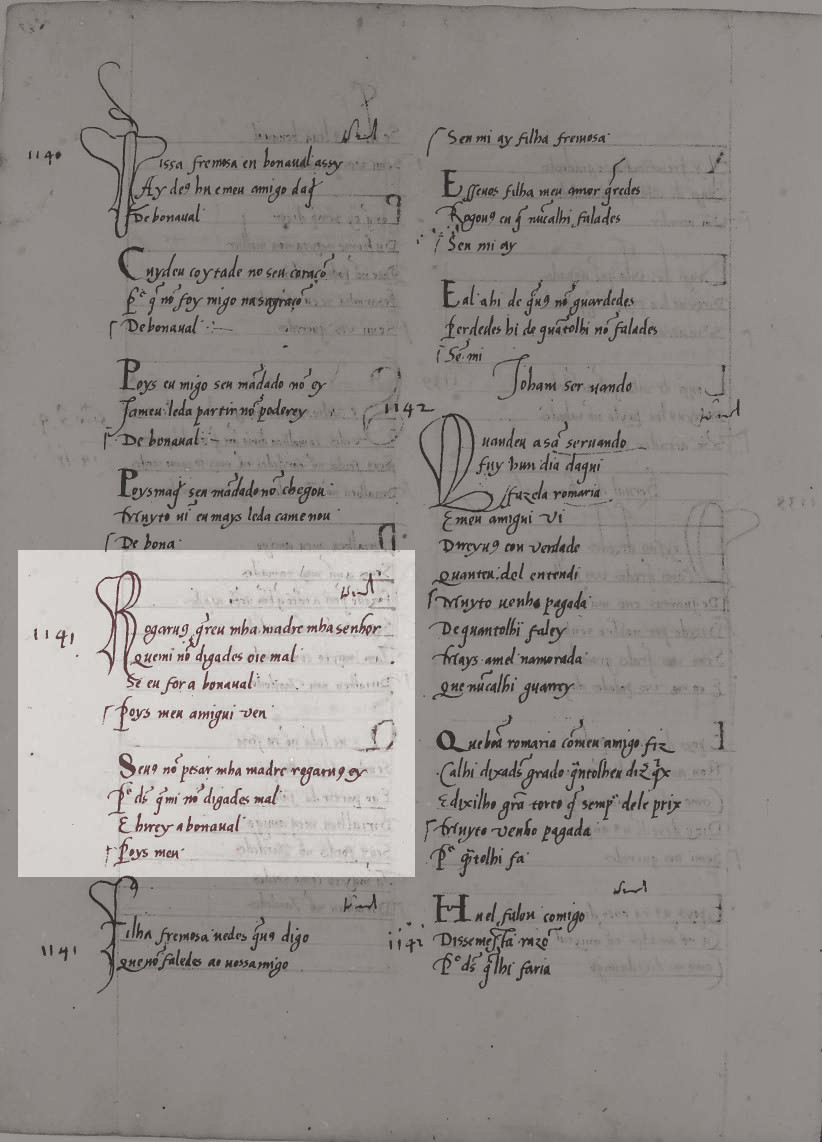 1140
issa fremosa en bonaual assy
Ay de9 hu e meu amigo daq̃
De bonaual
Cuydeu coytade no seu coraçõ
P̃e q̃ nõ foy migo na sagraçõ
De bonaual
Poys eu migo seu mãdado nõ ey
Ja meu leda partir nõ poderey
De bonaual
Poys maq̃ seu mãdado nõ chegou
Muyto ui eu mays leda came nou
De bona
1141
Rogaru9 q̃reu mha madre mha senhor
Quemi nõ digades oie mal
Se eu for a bonaual
Poys meu amigui uen
Seu9 nõ pesar mha madre rogaru9 ey
P̃e ds̃ q̃mi nõ digades mal
E hirey a bonaual
Poys meu
1141
Filha fremosa uedes q̃u9 digo
Que nõ faledes ao uossamigo
Sen mi ay filha fremosa
E sseuos filha meu amor q̃redes
Rogou9 eu q̃ nũcalhi falades
Sen mi ay
E al ahi de q̃u9 nõ guardedes
Perdedes hi de quãtolhi nõ falades
Sẽ mi
Joham seruando
1142
Quandeu a sã seruando
fuy hun dia daqui
ffazela romaria
E meu amigui ui
Direyu9 con uerdade
Quanteu del entendi
Muyto uenho pagada
De quantolhi faley
Mays amel namorada
Que nũcalhi guarrey
Que boã romaria cõ meu amigo fiz
Calhi dixads̃ grado q̃ntolheu diz q̃x
E dixilho grã torto q̃ semp̃ dele prix
Muyto uenho pagada
P̃e q̃tolhi fa
1142
H nel falou comigo
Dissemesta razõ
P̃e ds̃ q̃ lhi faria